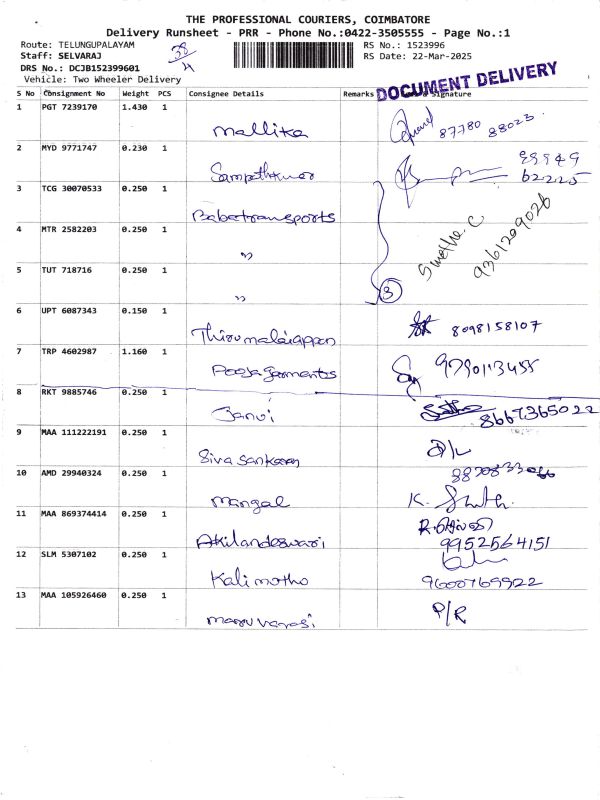 THE PROFESSIONAL COURIERS, COIMBATORE
Delivery Runsheet - PRR - Phone No.:0422-3505555 - Page No.:1
Route: TELUNGUPALAYAM RS No.: 1523996
Staff: SELVARAJ RS Date: 22-Mar-2025
DRS No.: DCJB152399601
Vehicle: Two Wheeler Delivery
DOCUMENT DELIVERY
S No Consignment No Weight PCS Consignee Details Remarks Signature
1 PGT 7239170 1.430 1
Mallika 87780 88023
2 MYD 9771747 0.230 1
Sampathkumar 62225
3 TCG 30070533 0.250 1
Babatransports
4 MTR 2582203 0.250 1
"
Swetha. C
9361209026
5 TUT 718716 0.250 1
"
3
6 UPT 6087343 0.150 1
Thirumalaiappan 8098158107
7 TRP 4602987 1.160 1
Pooja garments
8 RKT 9885746 0.250 1
Janvi 8667365022
9 MAA 111222191 0.250 1
Siva sankaran D/L
10 AMD 29940324 0.250 1
Mangal K.
11 MAA 869374414 0.250 1
Akilandeswari 9952564151
12 SLM 5307102 0.250 1
Kalimuthu 9600769922
13 MAA 105926460 0.250 1
P/R